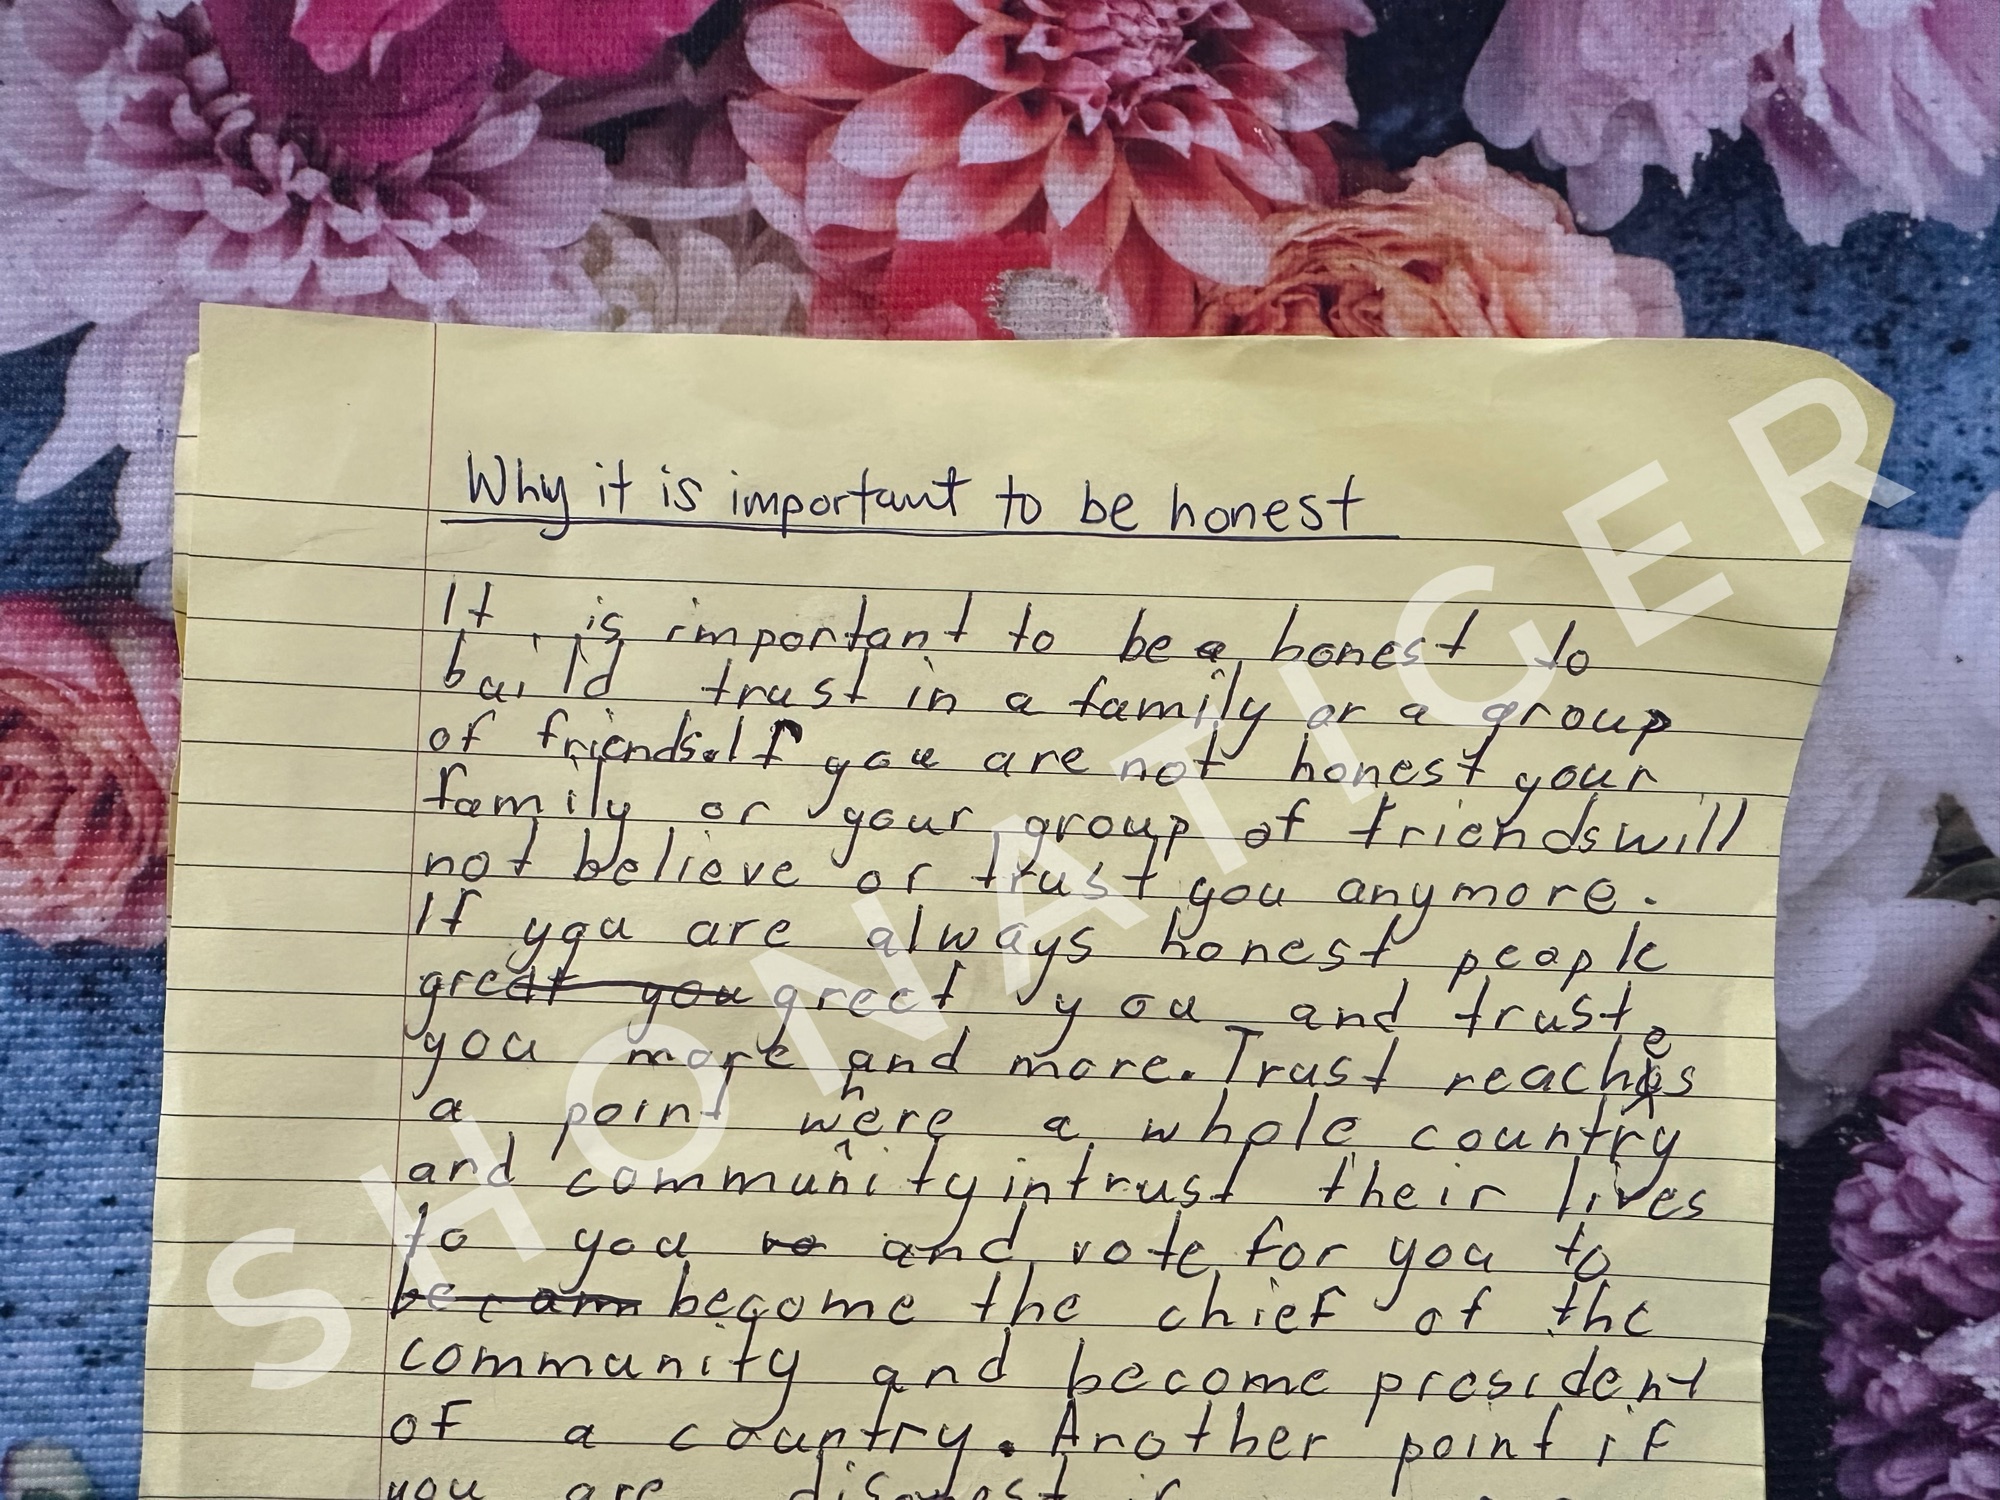 Why it is important to be honest
It is important to be a honest to
build trust in a family or a group
of friends. If you are not honest your
family or your group of friends will
not believe or trust you anymore.
If you are always honest people
great you greet you and trust
you more and more. Trust reaches
a point where a whole country
and community intrust their lives
to you vo and vote for you to
becam become the chief of the
community and become president
of a country. Another point if
you are dishonest if
SHONATICER